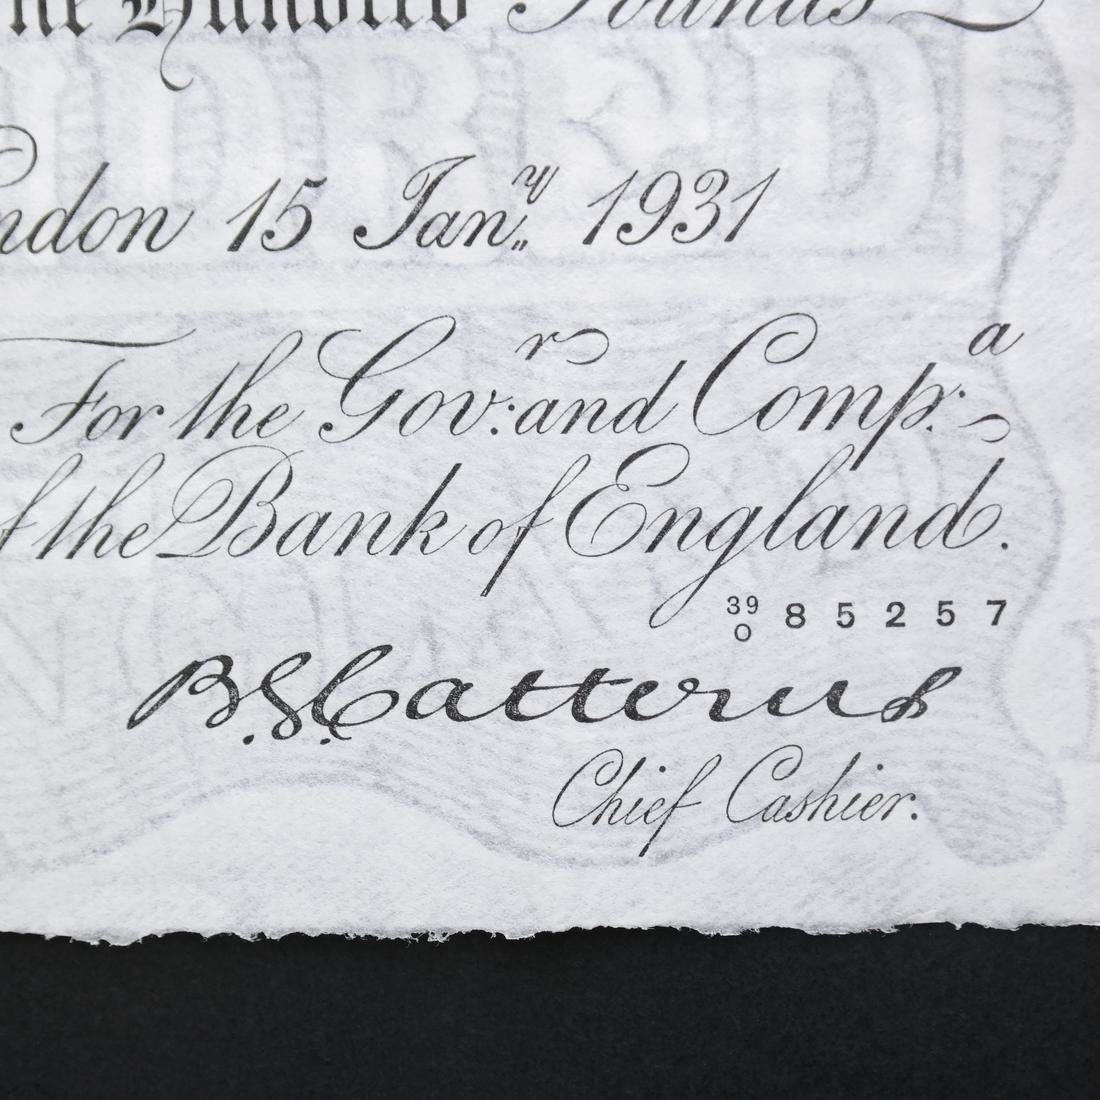 ne Hundred Pounds
ndon 15 Jany 1931
For the Gov:r and Comp:a
f the Bank of England.
39/0 85257
B.G. Catterns
Chief Cashier.